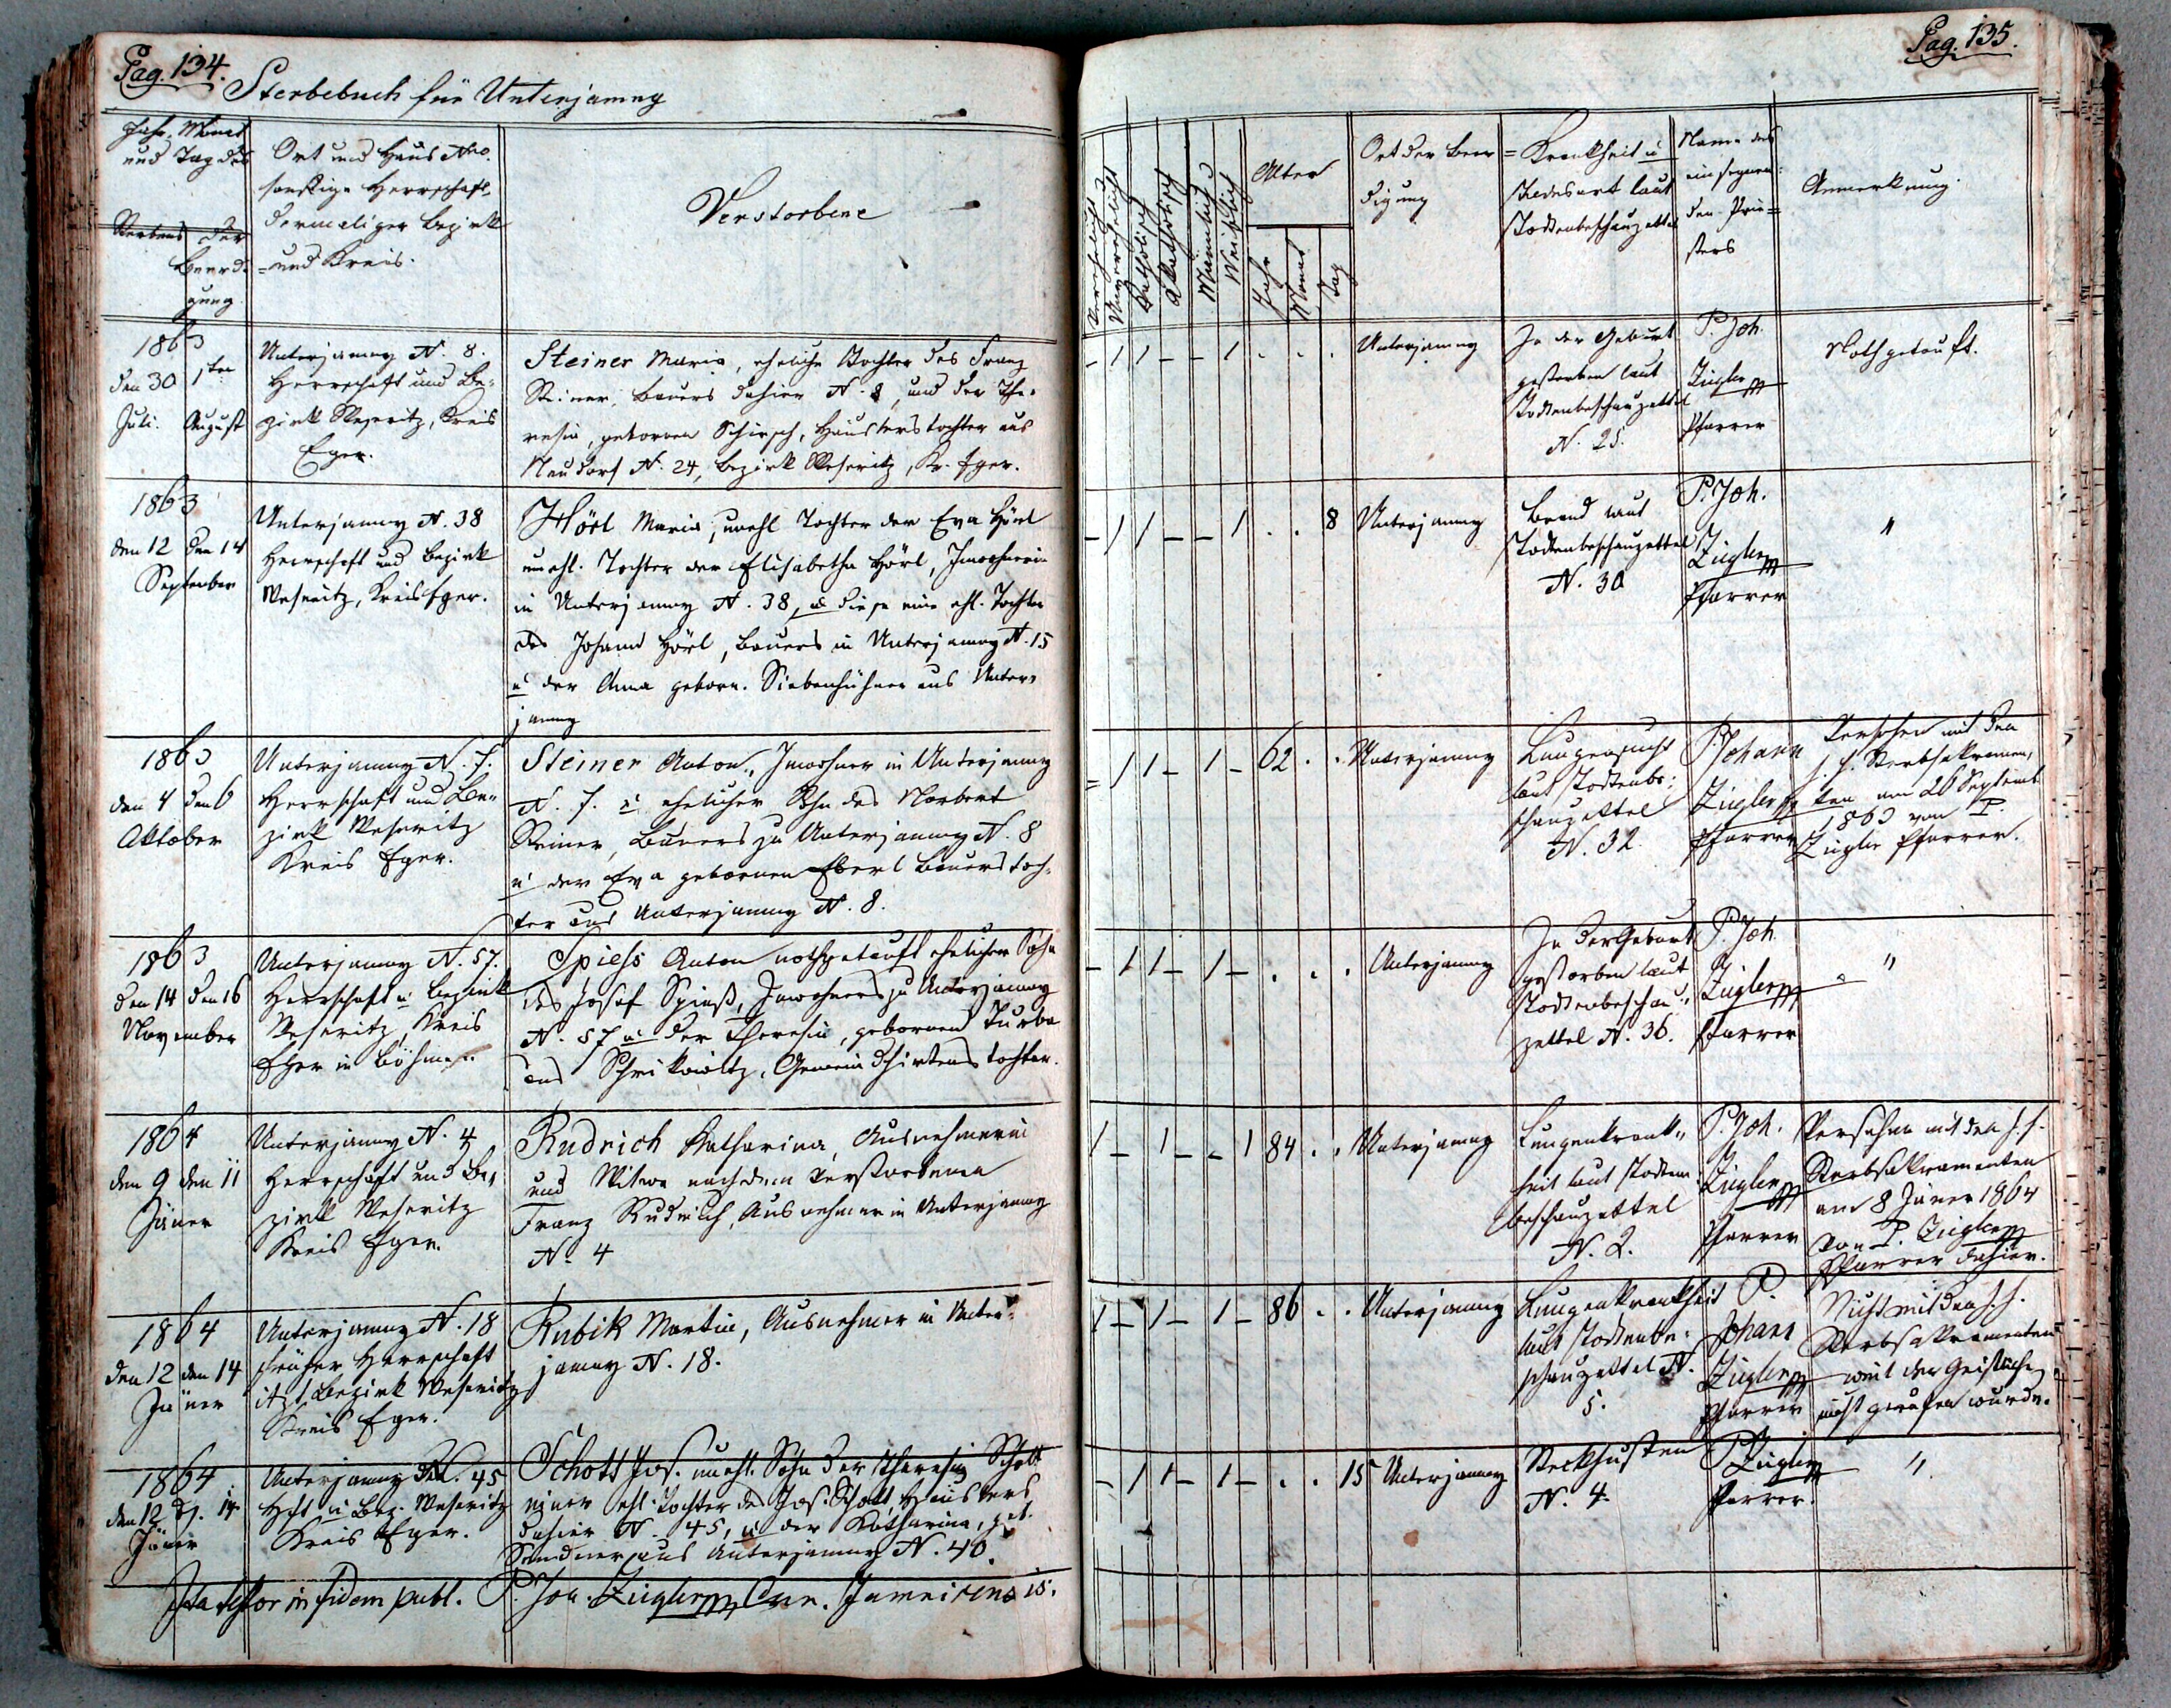 Pag. 134.
Sterbebuch für Unterjamny
Jahr, Monat
und Tag des
Sterbens der
Beerdi-
gung
Ort und Haus Nro.
sonstige Herrschaft,
dermaliger Bezirk
und Kreis.
Verstorbene
1863
den 30 1ten
Juli. August
Unterjamny N. 8.
Herrschaft und Be-
zirk Weseritz, Kreis
Eger.
Steiner Maria, eheliche Tochter des Franz
Steiner, Bauers dahier N. 8, und der The-
resia, gebornen Schirsch, Häuslerstochter aus
Neudorf N. 24, Bezirk Weseritz, Kr. Eger.
1863
den 12 den 14
September
Unterjamny N. 38
Herrschaft und Bezirk
Weseritz, Kreis Eger.
Hörl Maria, unehl Tochter der Eva Hörl
unehl. Tochter der Elisabetha Hörl, Inwohnerin
in Unterjamny N. 38, u diese eine ehl. Tochter
des Johann Hörl, Bauers in Unterjamny N. 15
u der Anna geborn. Siebenhühner aus Unter-
jamny
1863
den 4 den 6
Oktober
Unterjamny N. 7.
Herrschaft und Be-
zirk Weseritz
Kreis Eger.
Steiner Anton, Inwohner in Unterjamny
N. 7. u ehelicher Sohn des Norbert
Steiner, Bauers zu Unterjamny N. 8
u der Eva gebornen Eberl Bauerstoch-
ter aus Unterjamny N. 8.
1863
den 14 den 16
November
Unterjamny N. 57.
Herrschaft u Bezirk
Weseritz, Kreis
Eger in Böhmen.
Spiess Anton nothgetauft ehelicher Sohn
des Josef Spieß, Inwohners zu Unterjamny
N. 57 u der Theresia, gebornen Turba
aus Gemeindhirtens tochter.
1864
den 9 den 11
Jäner
Unterjamny N. 4
Herrschaft und Be-
zirk Weseritz
Kreis Eger.
Rudrich Katharina, Ausnehmerin
und Witwe nach dem verstorbenen
Franz Rudrich, Ausnehmer in Unterjamny
No. 4
1864
den 12 den 14
Jäner
Unterjamny N. 18
früher Herrschaft
itzt Bezirk Weseritz
Kreis Eger.
Rubik Martin, Ausnehmer in Unter-
jamny N. 18.
1864
den 12 d. 14
Jäner
Unterjamny N. 45
Hft u Bez. Weseritz
Kreis Eger.
Schott Jos. unehl. Sohn der Theresia Schott
einer ehl. Tochter des Jos. Schott Häuslers
dahier N. 45, u der Katharina, geb.
Sandner aus Unterjamny N. 40.
Ita testor in fidem publ. P. Joh. Zieglermp Cur. Jamnicensis.
Pag. 135.
Verehelicht
Unverehelicht
Katholisch
Akatholisch
Männlich
Weiblich
Alter
Jahr
Monat
Tag
Ort der Beer-
digung
Krankheit u
Todesart laut
Todtenbeschauzettel
Name des
einsegnen-
den Prie-
sters
Anmerkung.
- 1 1 - - 1 . . . Unterjamny
In der Geburt
gestorben laut
Todtenbeschauzettel
N. 25.
P. Joh.
Zieglermp
Pfarrer
Nothgetauft.
- 1 1 - - 1 . . 8 Unterjamny
Brand laut
Todtenbeschauzettel
N. 30
P. Joh.
Zieglermp
Pfarrer
"
- 1 1 - 1 - 62 . . Unterjamny
Lungensucht
laut Todtenbe-
schauzettel
N. 32.
P. Johann
Zieglermp
Pfarrer
Versehen mit den
h. h. Sterbsakramen-
ten am 26 Septemb
1863 von P.
Ziegler Pfarrer.
- 1 1 - 1 - . . . Unterjamny
In der Geburt
gestorben laut
Todtenbeschau-
zettel N. 36.
P. Joh.
Zieglermp
Pfarrer
"
1 - 1 - - 1 84 . . Unterjamny
Lungenkrank-
heit laut Todten-
beschauzettel
N. 2.
P. Joh.
Zieglermp
Pfarrer
Versehen mit den h. h.
Sterbsakramenten
am 8 Jäner 1864
von P. Zieglermp
Pfarrer dahier.
1 - 1 - 1 - 86 . . Unterjamny
Lungenkrankheit
laut Todtenbe-
schauzettel N.
5.
P.
Johann
Zieglermp
Pfarrer
Nicht mit den h. h.
Sterbsakramenten
weil der Geistliche
nicht gerufen wurde.
- 1 1 - 1 - . . 15 Unterjamny
Steckhusten
N. 4.
P. Zieglermp
Pfarrer.
"